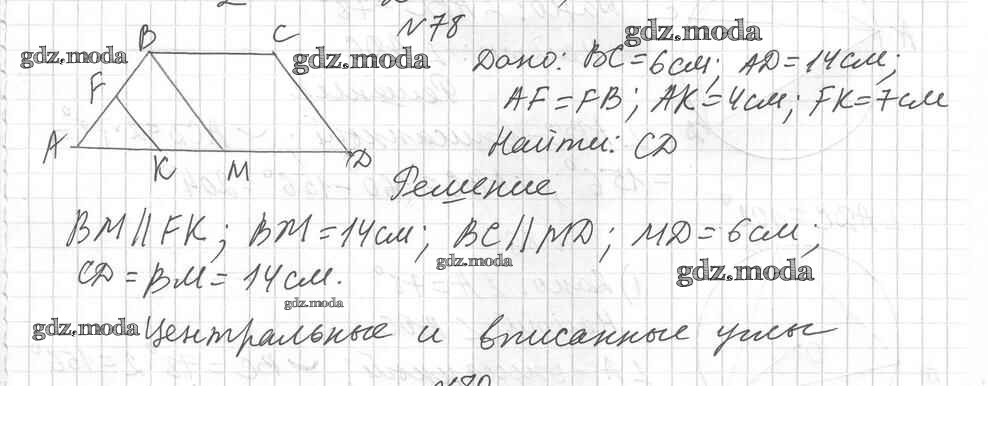 N78
B C
gdz.moda gdz.moda gdz.moda
Дано: BC=6см; AD=14см;
F
AF=FB; AK=4см; FK=7см
A K M D
Найти: CD
Решение
BM||FK; BM=14см; BC||MD; MD=6см;
gdz.moda gdz.moda
CD=BM=14см.
gdz.moda
gdz.moda Центральные и вписанные углы